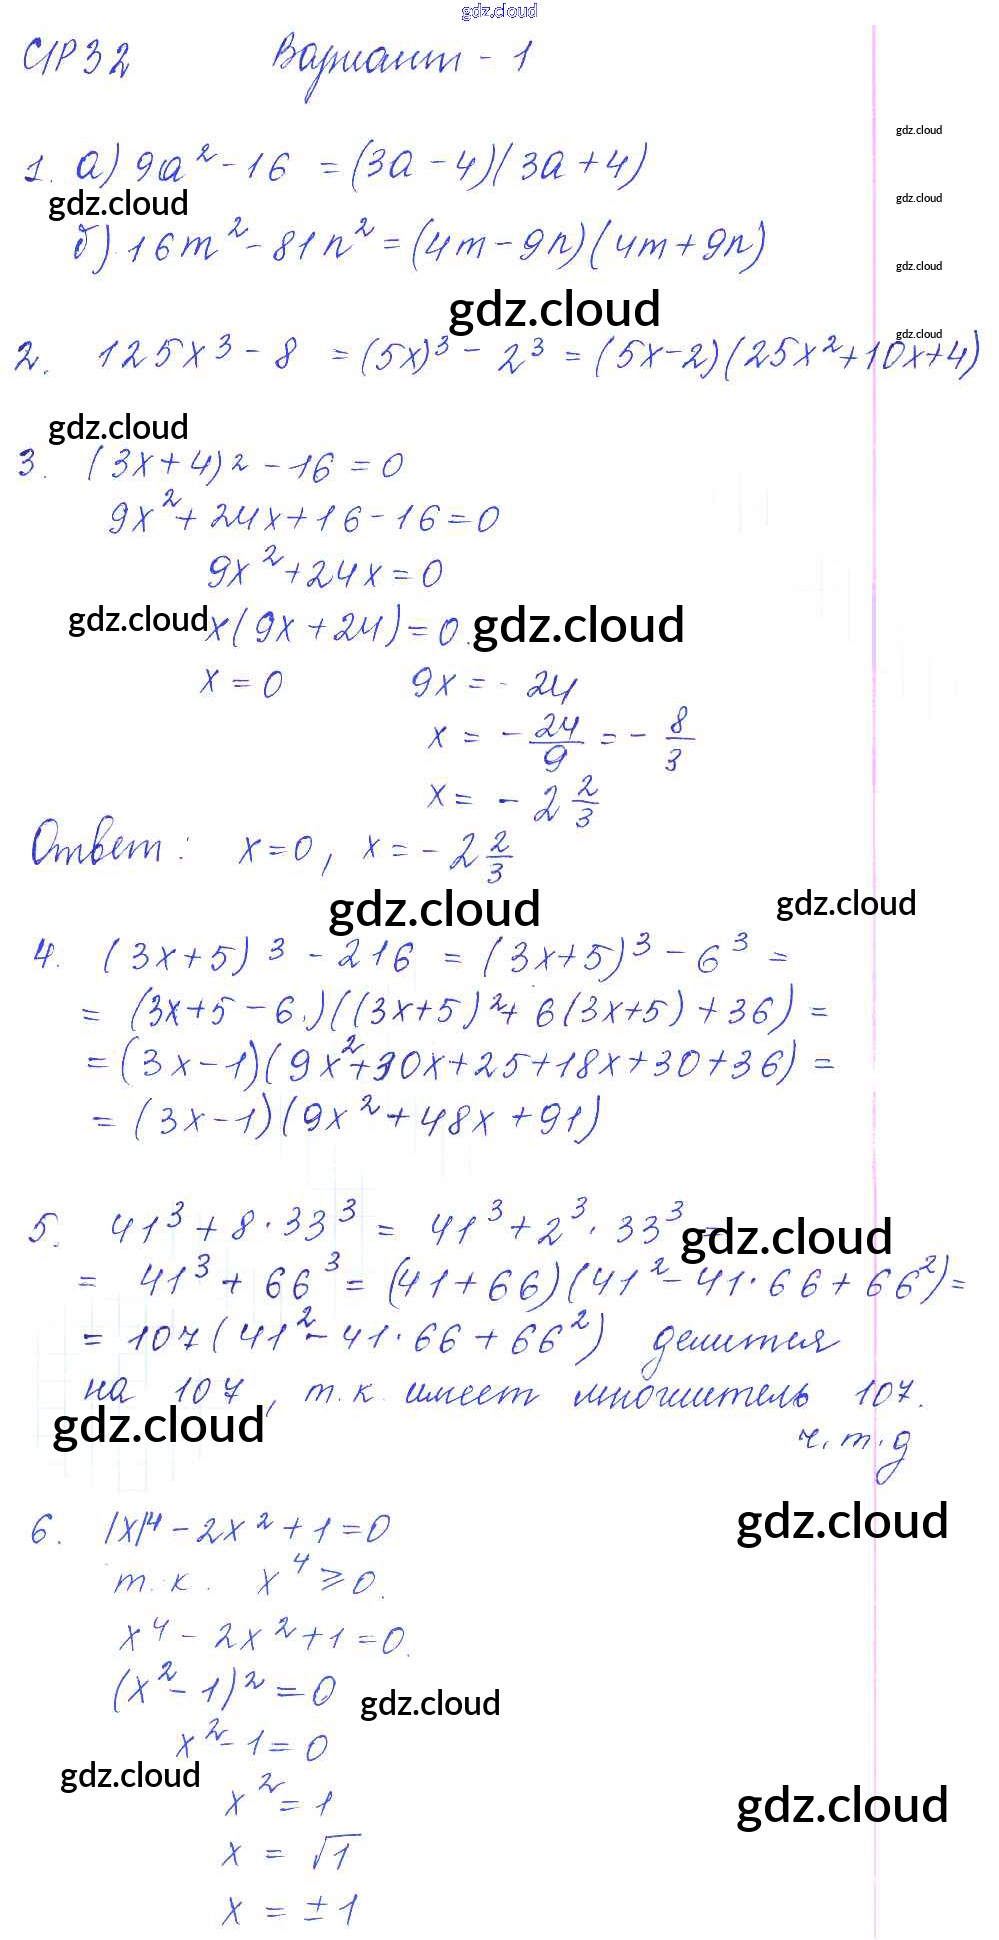 gdz.cloud
СР32 Вариант - 1
gdz.cloud
1. а) 9a² - 16 = (3a - 4)(3a + 4)
gdz.cloud
gdz.cloud
б) 16m² - 81n² = (4m - 9n)(4m + 9n)
gdz.cloud
gdz.cloud
gdz.cloud
2. 125x³ - 8 = (5x)³ - 2³ = (5x - 2)(25x² + 10x + 4)
gdz.cloud
3. (3x + 4)2 - 16 = 0
9x² + 24x + 16 - 16 = 0
9x² + 24x = 0
gdz.cloud x(9x + 24) = 0. gdz.cloud
x = 0 9x = - 24
x = - 24/9 = - 8/3
x = - 2 2/3
Ответ: x = 0, x = - 2 2/3
gdz.cloud gdz.cloud
4. (3x + 5)³ - 216 = (3x + 5)³ - 6³ =
= (3x + 5 - 6)((3x + 5)² + 6(3x + 5) + 36) =
= (3x - 1)(9x² + 30x + 25 + 18x + 30 + 36) =
= (3x - 1)(9x² + 48x + 91)
5. 41³ + 8 · 33³ = 41³ + 2³ · 33³ =
gdz.cloud
= 41³ + 66³ = (41 + 66)(41² - 41 · 66 + 66²) =
= 107(41² - 41 · 66 + 66²) делится
на 107, т.к. имеет множитель 107.
gdz.cloud
ч.т.д
gdz.cloud
6. |x|4 - 2x² + 1 = 0
т.к. x⁴ ≥ 0.
x⁴ - 2x² + 1 = 0.
(x² - 1)² = 0
gdz.cloud
x² - 1 = 0
gdz.cloud
x² = 1
gdz.cloud
x = √1
x = ± 1